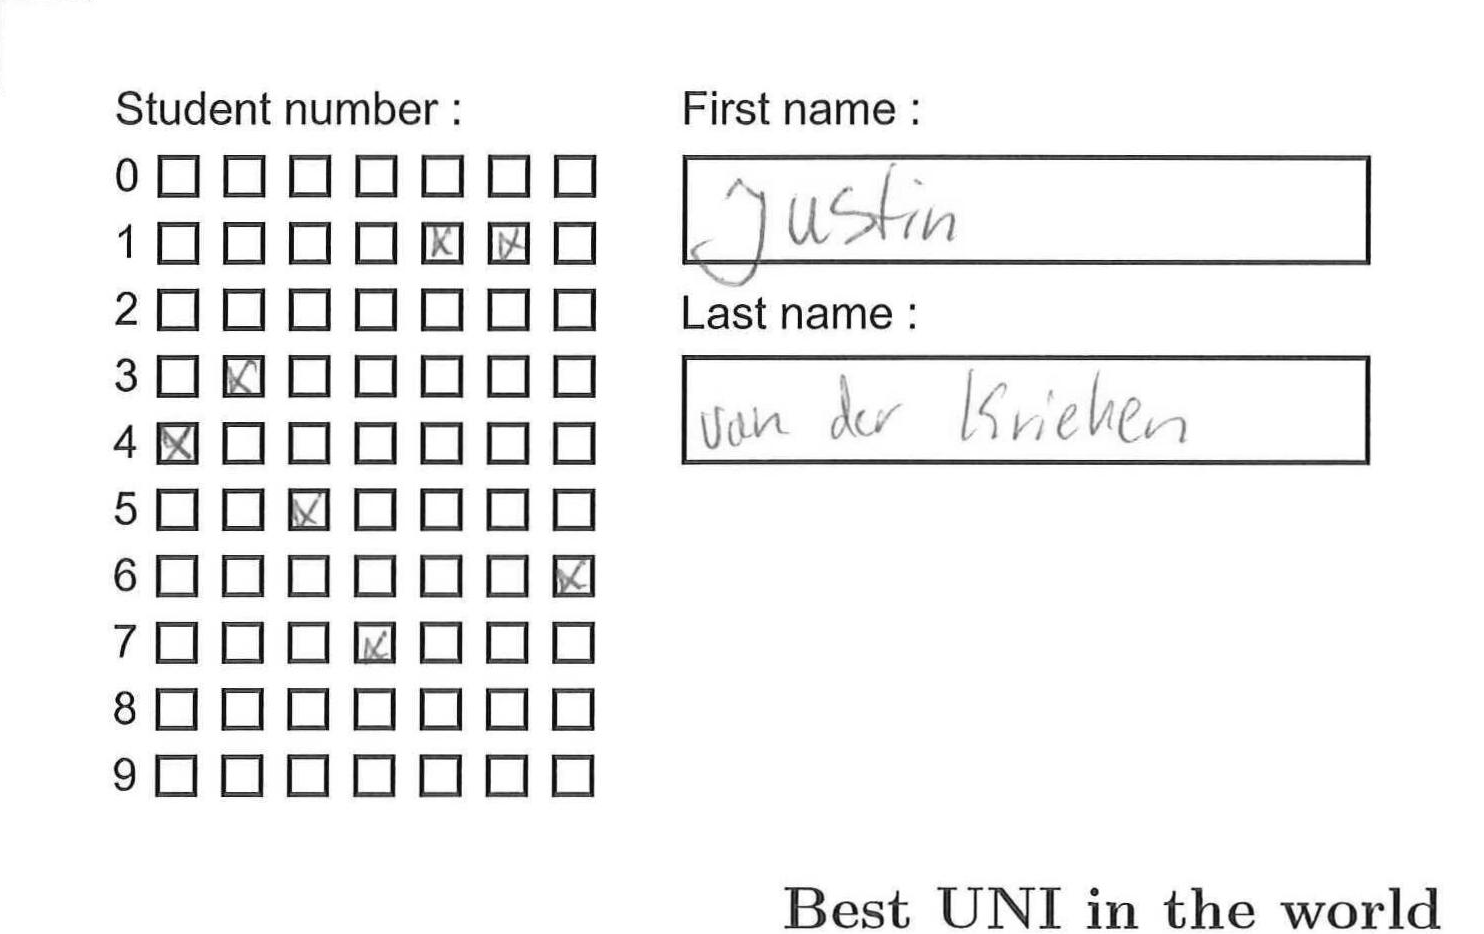 Student number :
0
1
2
3
4
5
6
7
8
9
First name :
Justin
Last name :
van der Kriehen
Best UNI in the world